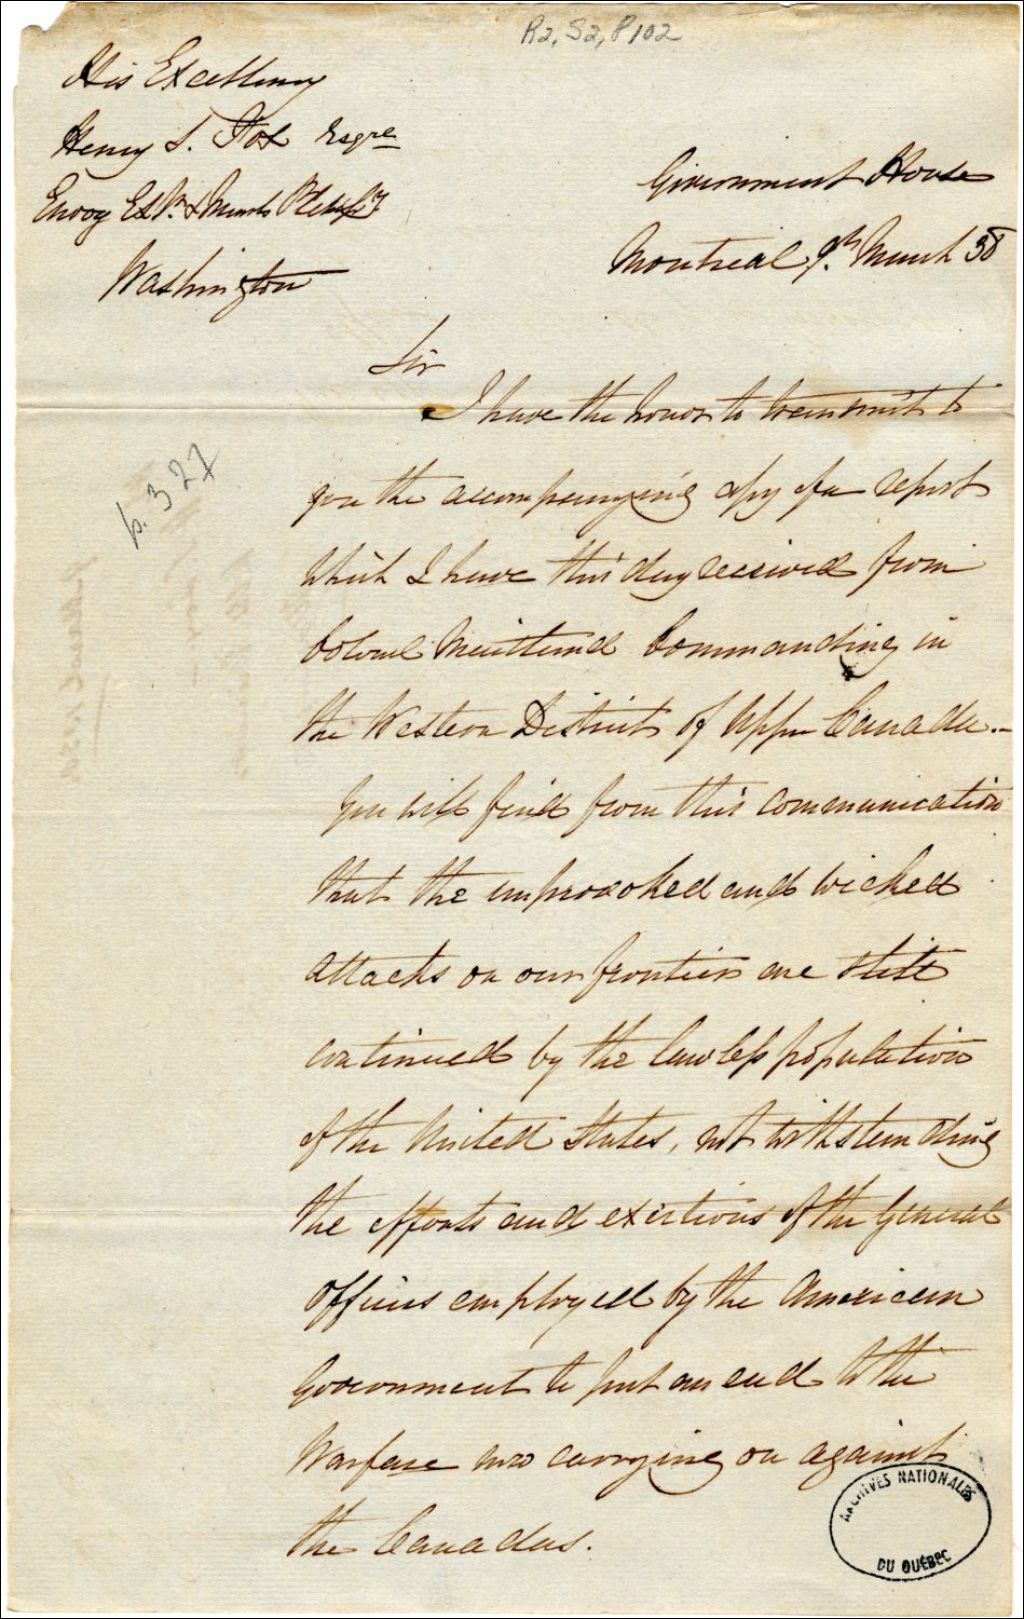 R2, S2, P102
His Excellency
Henry S. Fox Esqre
Envoy Ex.
Washington
Government House
Montreal 9th March 38
Sir
I have the honor to transmit to
you the accompanying copy of a report
which I have this day received from
Colonel Maitland Commanding in
the Western District of Upper Canada.-
You will find from this communication
that the unprovoked and wicked
attacks on our frontier are still
continued by the lawless population
of the United States, notwithstanding
the efforts and exertions of the General
Officers employed by the American
Government to put an end to the
Warfare now carrying on against
the Canadas.
p. 327
ARCHIVES NATIONALES
DU QUÉBEC